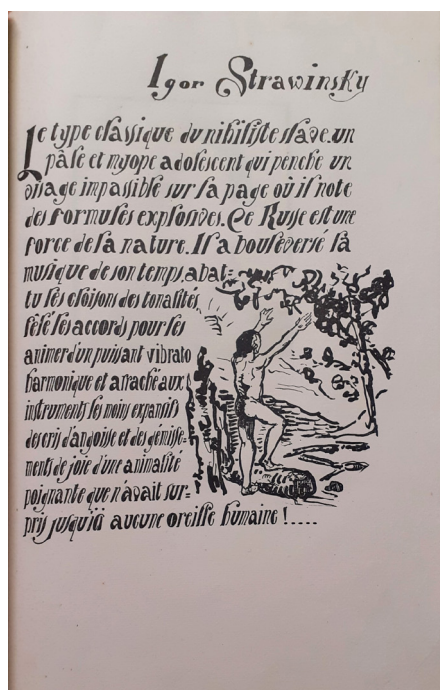 Igor Strawinsky
Le type classique du nihiliste slave. un
pâle et myope adolescent qui penche un
visage impassible sur la page où il note
des formules explosives. Ce Russe est une
force de la nature. Il a bouleversé la
musique de son temps, abat=
tu les cloisons des tonalités,
fêlé les accords pour les
animer d'un puissant vibrato
harmonique et arraché aux
instruments les moins expansifs
des cris d'angoisse et des gémisse=
ments de joie d'une animalité
poignante que n'avait sur=
pris jusqu'ià aucune oreille humaine !....